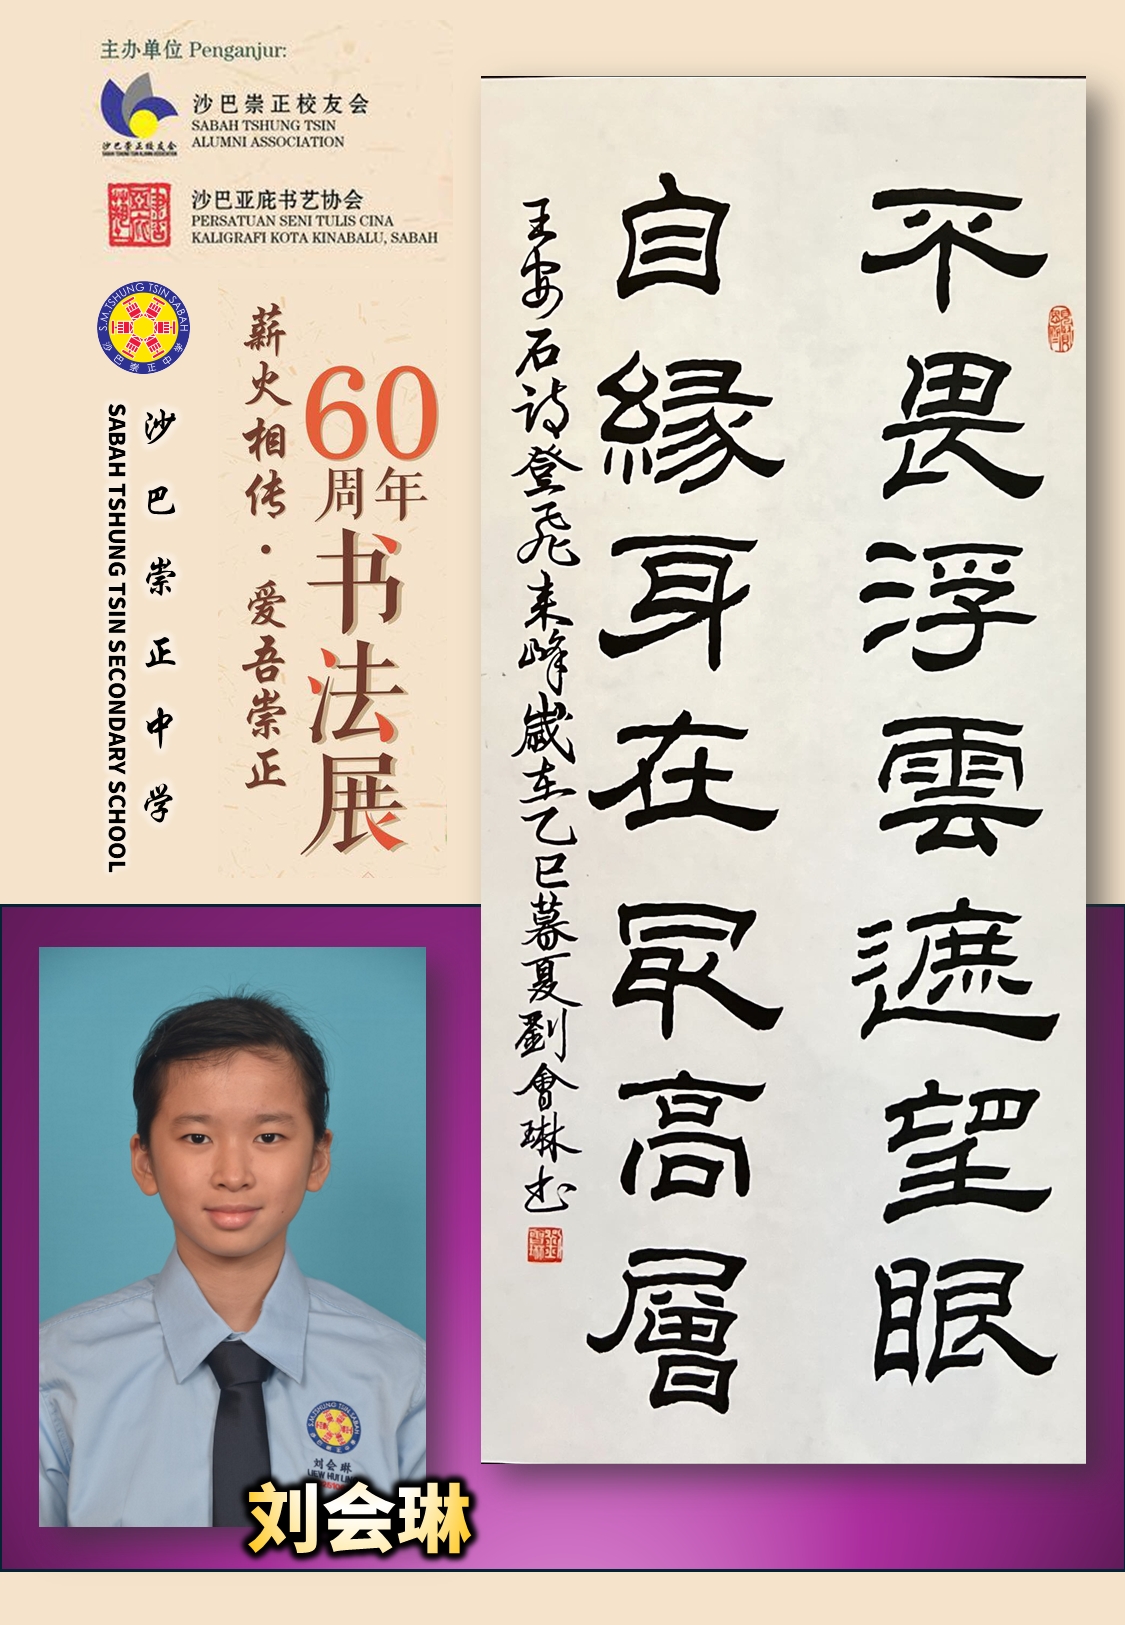 主办单位 Penganjur:
沙巴崇正校友会
SABAH TSHUNG TSIN
ALUMNI ASSOCIATION
沙巴崇正校友会
SABAH TSHUNG TSIN ALUMNI ASSOCIATION
沙巴亚庇书艺协会
PERSATUAN SENI TULIS CINA
KALIGRAFI KOTA KINABALU, SABAH
S.M.TSHUNG TSIN SABAH
沙巴崇正中学
沙巴崇正中学
SABAH TSHUNG TSIN SECONDARY SCHOOL
60
周年
书法展
薪火相传·爱吾崇正
不畏浮雲遮望眼
自緣身在最高層
王安石詩登飛来峰歲在乙巳暮夏劉會琳书
S.M.TSHUNG TSIN SABAH
沙巴崇正中学
刘会琳
LIEW HUI LIN
刘会琳